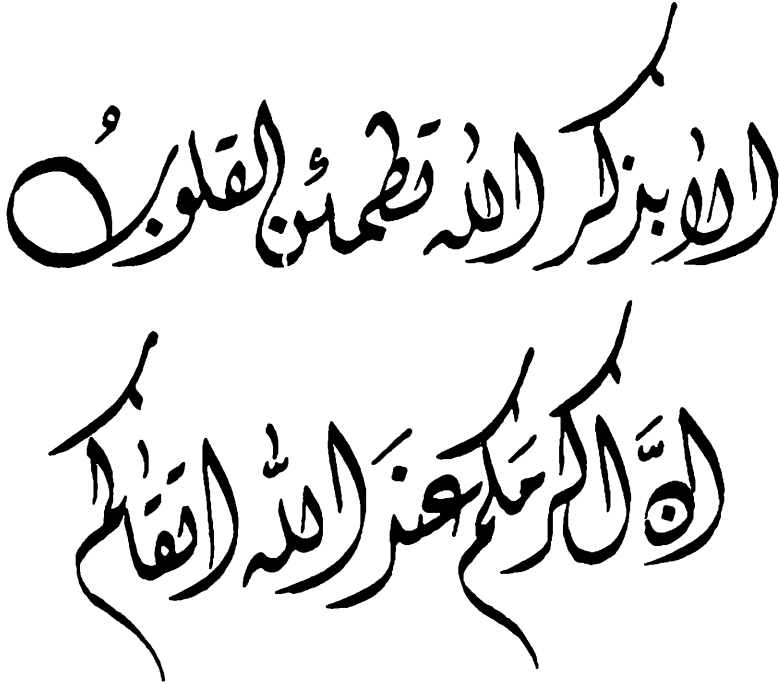 الا بذكر الله تطمئن القلوبُ
انَّ اكرمَكم عندَ اللّٰه اتقاكم